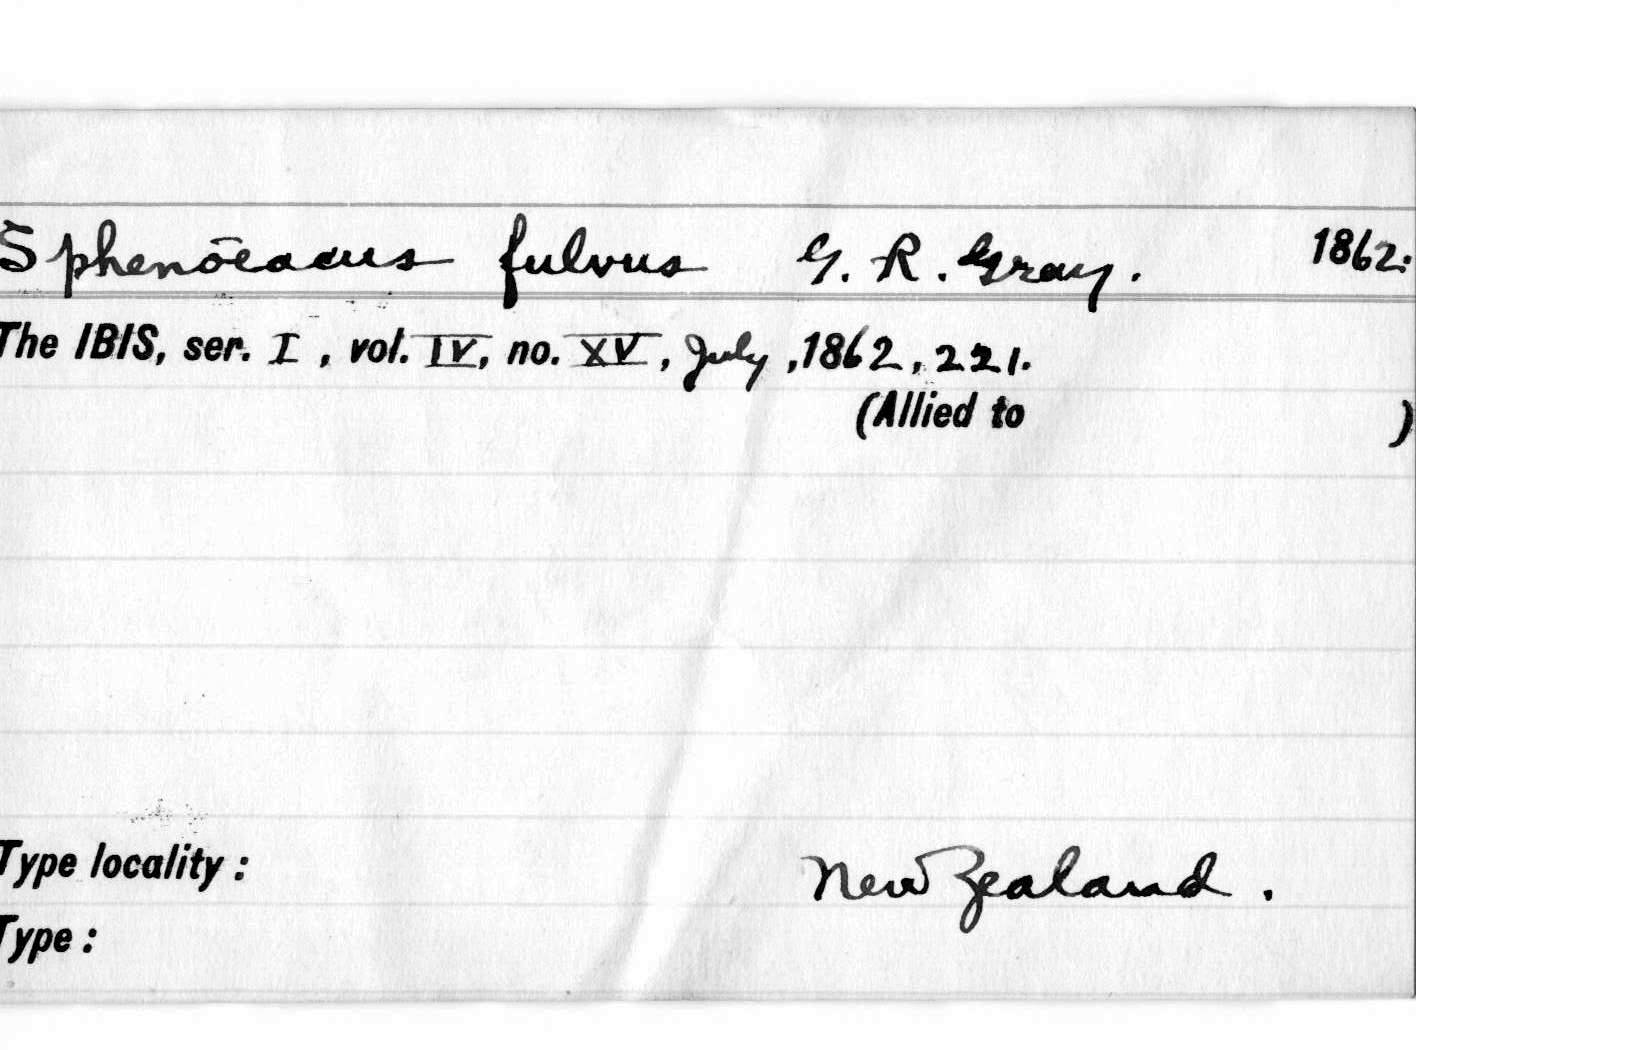 Sphenōeacus fulvus G. R. Gray. 1862:
The IBIS, ser. I, vol. IV, no. XV, July, 1862, 221.
(Allied to )
Type locality: New Zealand.
Type: